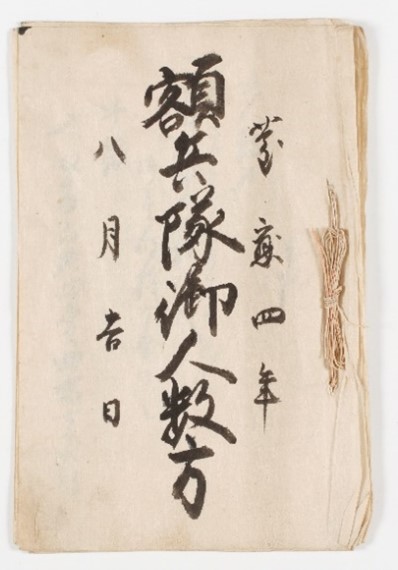 慶應四年
額兵隊御人数方
八月吉日